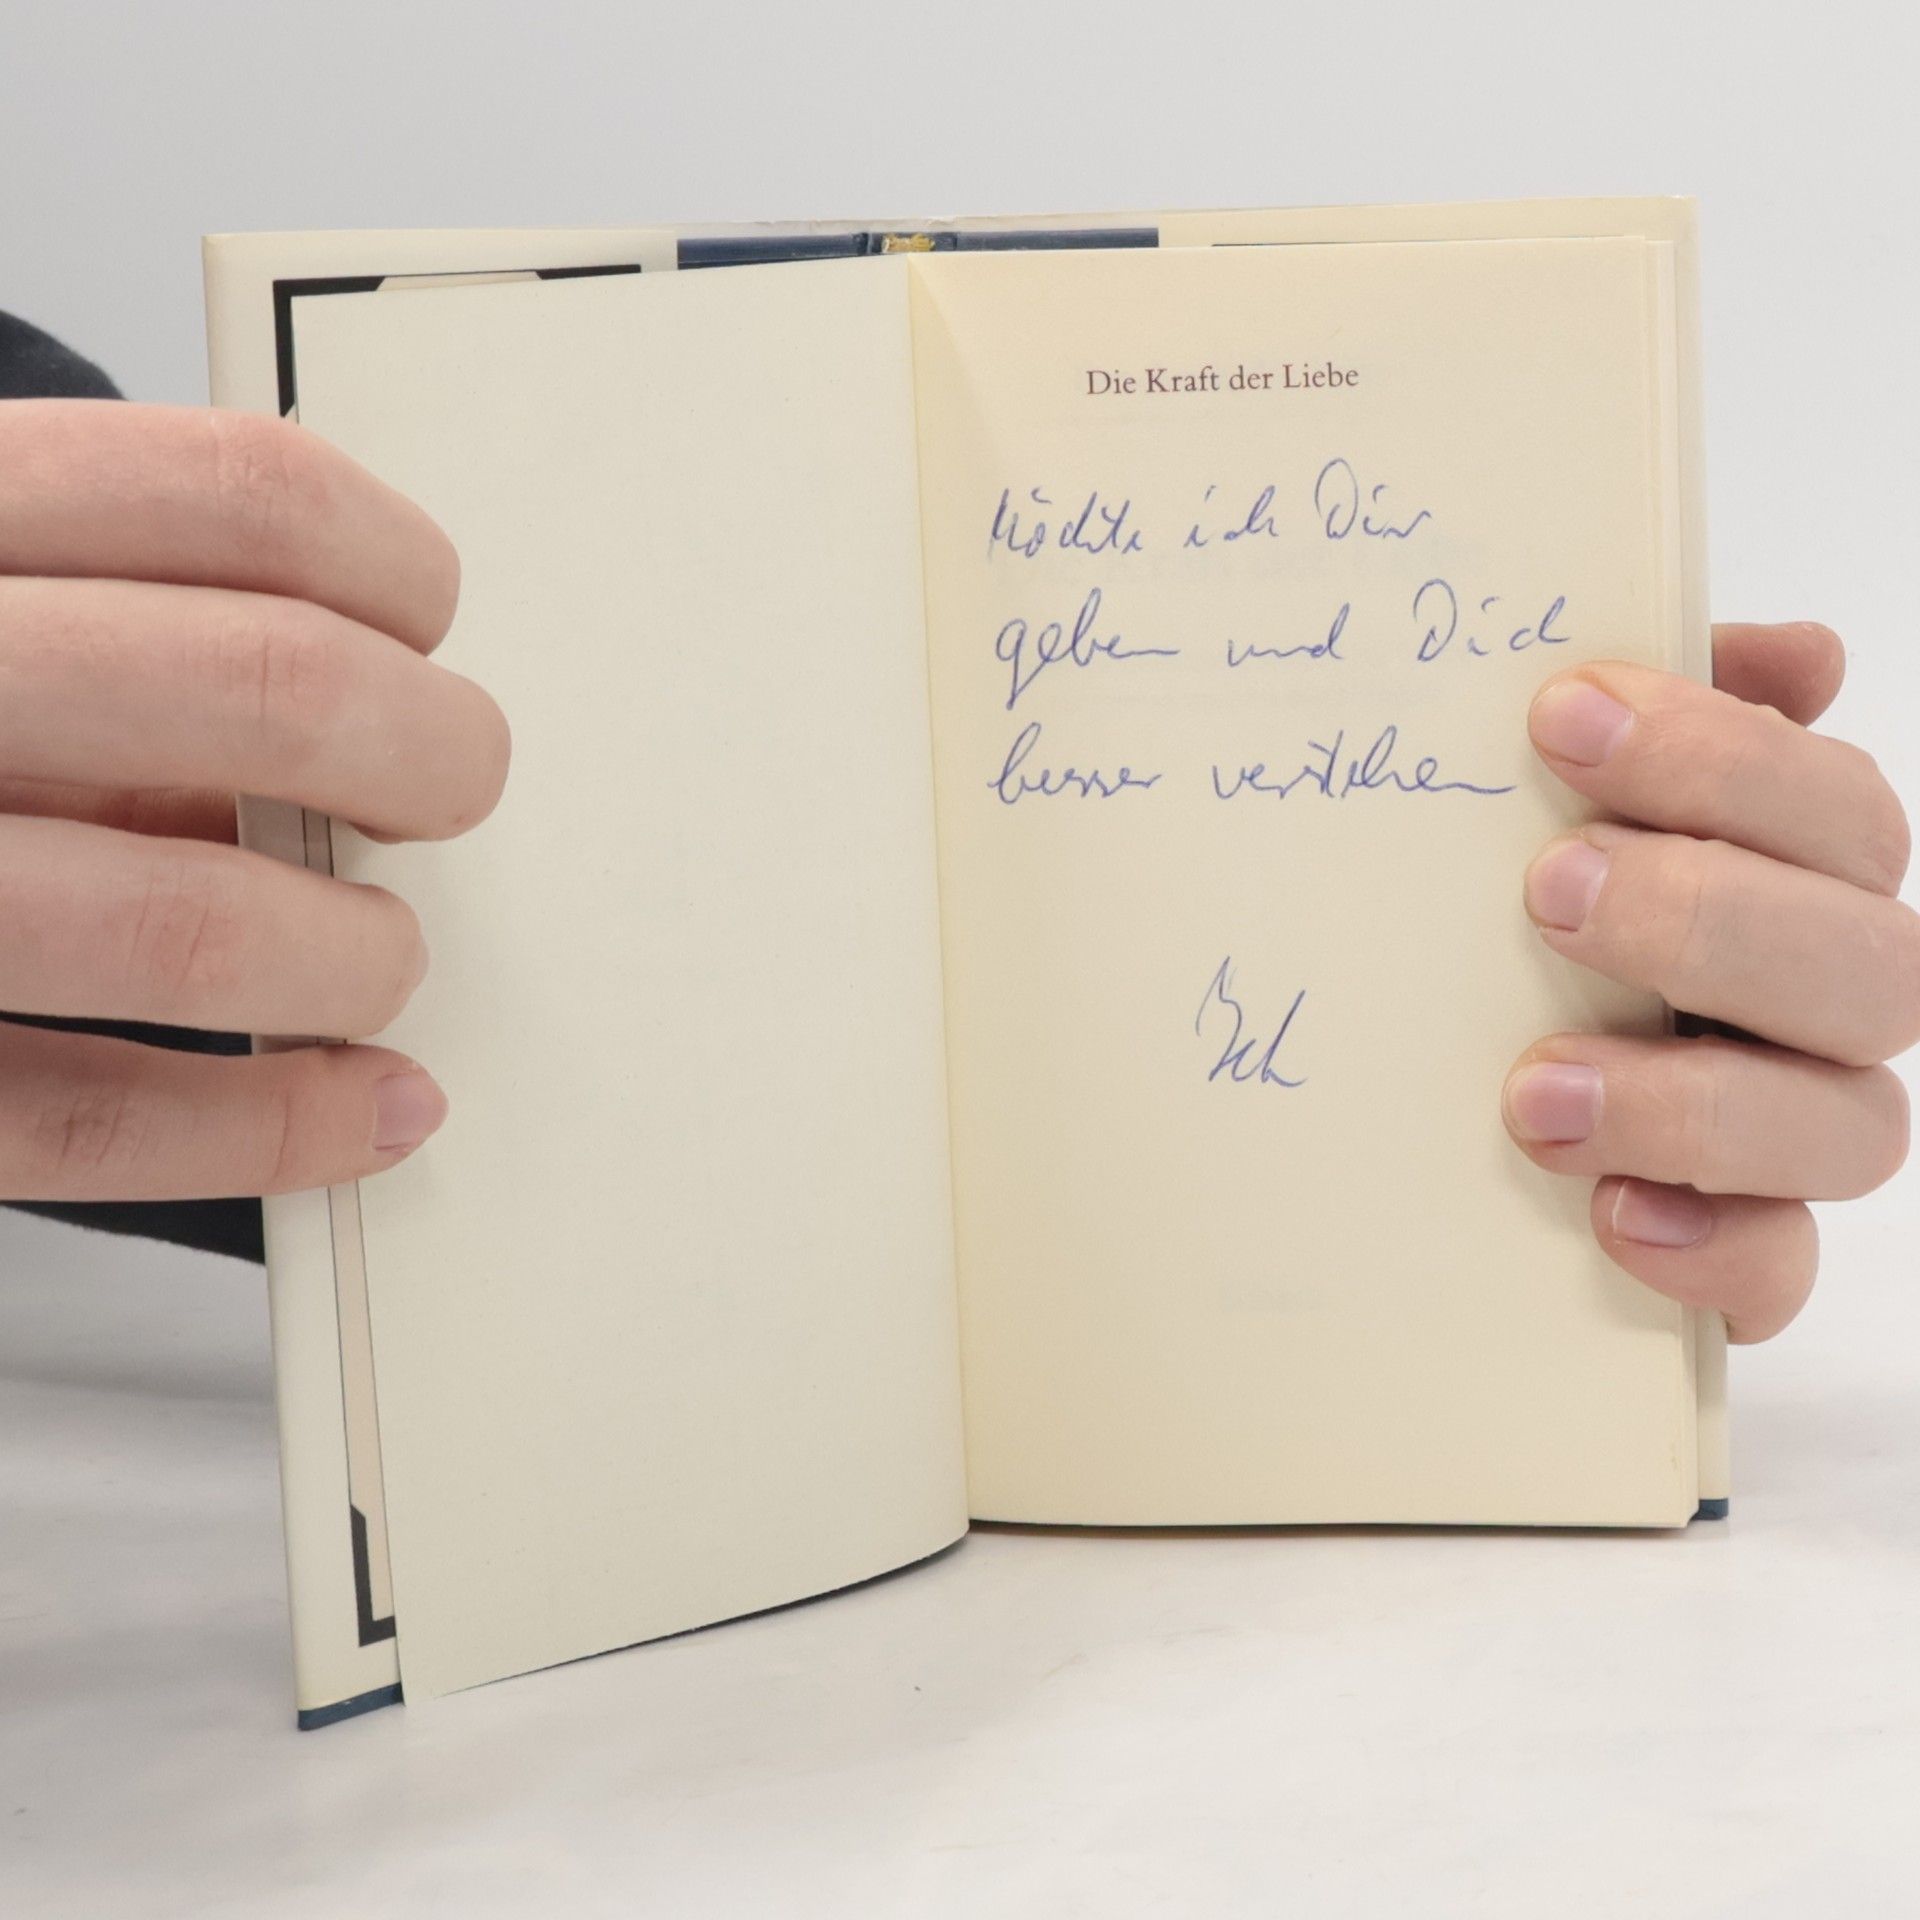 Die Kraft der Liebe
Möchte ich Dir
geben und Dich
besser verstehen
Ich